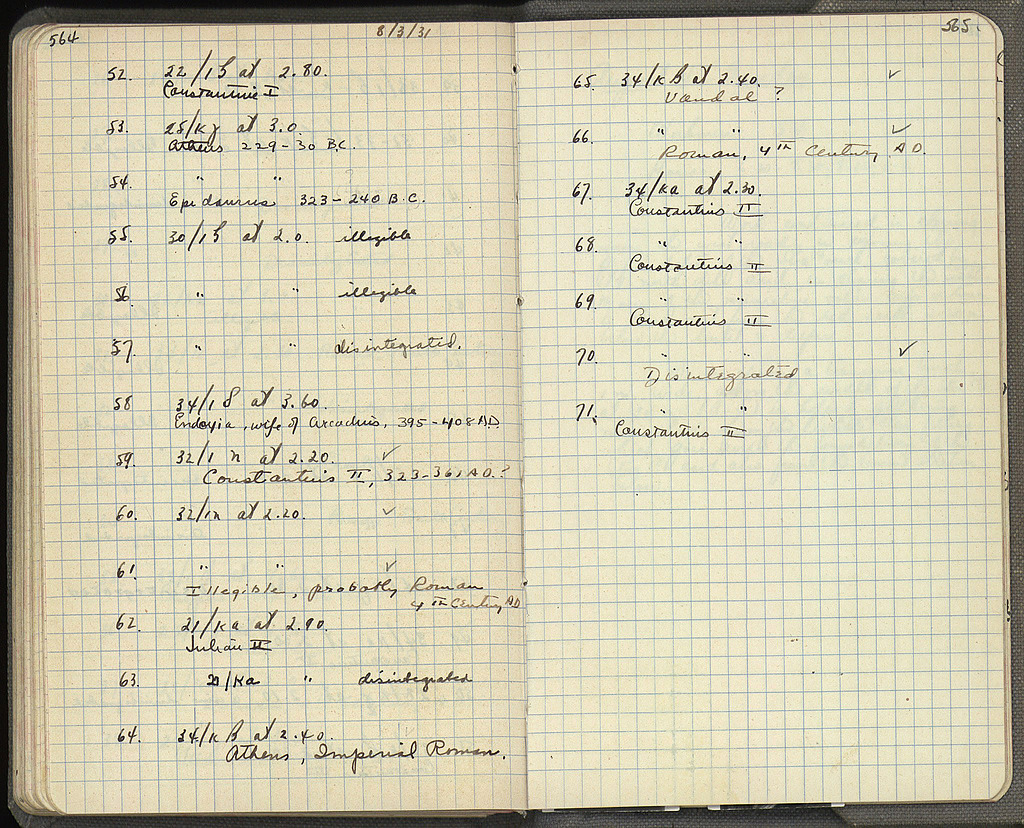 564
8/3/31
52. 22/ΙϚ at 2.80.
Constantine I
53. 25/ΚΖ at 3.0.
Athens 229-30 B.C.
54. " "
Epidaurus 323-240 B.C.
55. 30/ΙϚ at 2.0. illegible
56. " " illegible
57. " " disintegrated.
58 34/ΙΔ at 3.60.
Eudoxia, wife of Arcadius, 395-408 A.D.
59. 32/ΙΗ at 2.20. ✓
Constantius II, 323-361 A.D.?
60. 32/ΙΗ at 2.20. ✓
61. " " ✓
Illegible, probably Roman
4TH Century AD
62. 21/ΚΑ at 2.90.
Julian II
63. 21/ΚΑ " disintegrated
64. 34/ΚΒ at 2.40.
Athens, Imperial Roman.
565.
65. 34/ΚΒ at 2.40. ✓
Vandal ?
66. " " ✓
Roman, 4TH Century A.D.
67. 34/ΚΑ at 2.30.
Constantius II
68. " "
Constantius II
69. " "
Constantius II
70. " " ✓
Disintegrated
71. " "
Constantius II